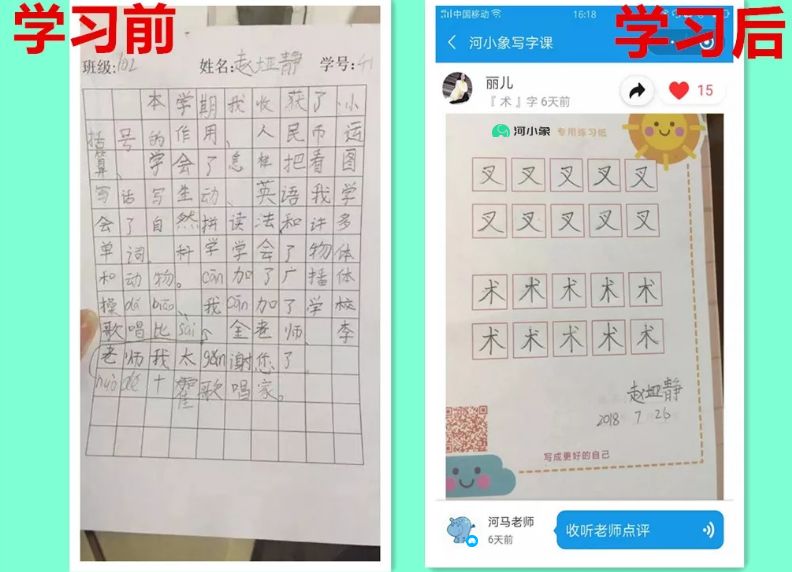 学习前
班级:102 姓名:赵垭静 学号:41
本学期我收获了小
括号的作用、人民币运
算、学会了怎样把看图
写话写生动、英语我学
会了自然拼读法和许多
单词、科学学会了物体
和动物。cān加了广播体
操dà bǐsài、我cān加了学校
歌唱比sài、金老师、李
老师我太gǎn谢您了
huò dé十霍歌唱家。
学习后
中国移动 16:18
河小象写字课
丽儿
『术』字 6天前
15
河小象 专用练习纸
叉叉叉叉叉
叉叉叉叉叉
术术术术术
术术术术术
赵垭静
2018 7 26
写成更好的自己
河马老师
6天前
收听老师点评